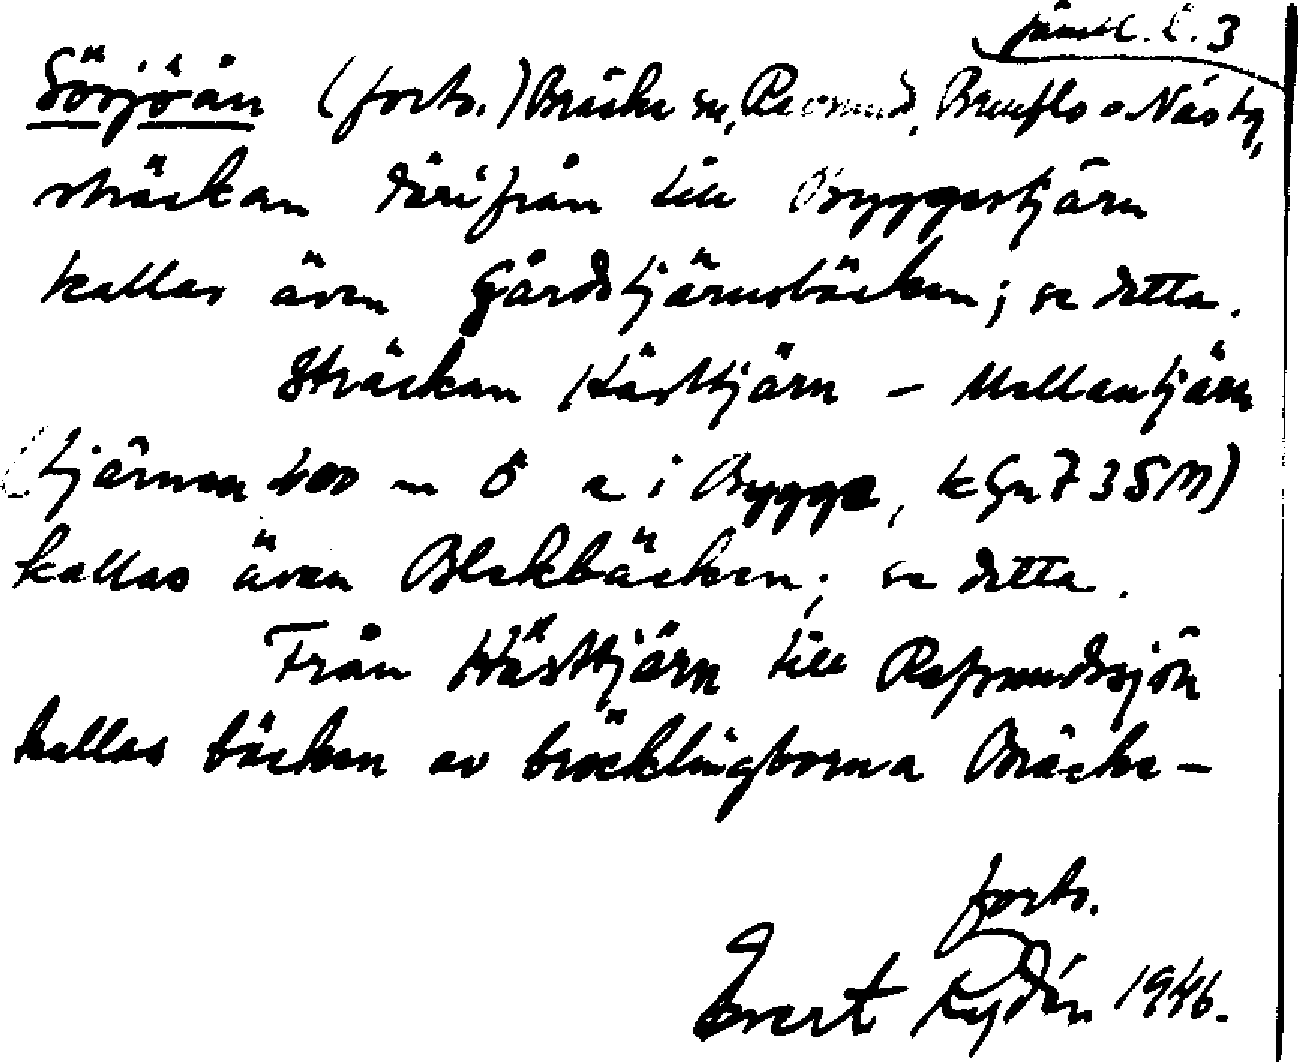 Jämtl. l. 3
Sörjöån (forts.) Bräcke sn, Revsund, Brunflo o Näs tg,
sträckan därifrån till Byggestjärn
kallas även Gårdstjärnsbäcken; se detta.
Sträckan Hästtjärn - Mellantjärn
(tjärnen 400 m ö a i Bygge, kGn 7 3 SM)
kallas även Blekbäcken; se detta.
Från Hästtjärn till Refsundssjön
kallas bäcken av bräcklingborna Bräcke-
forts.
Evert Rydén 1946.